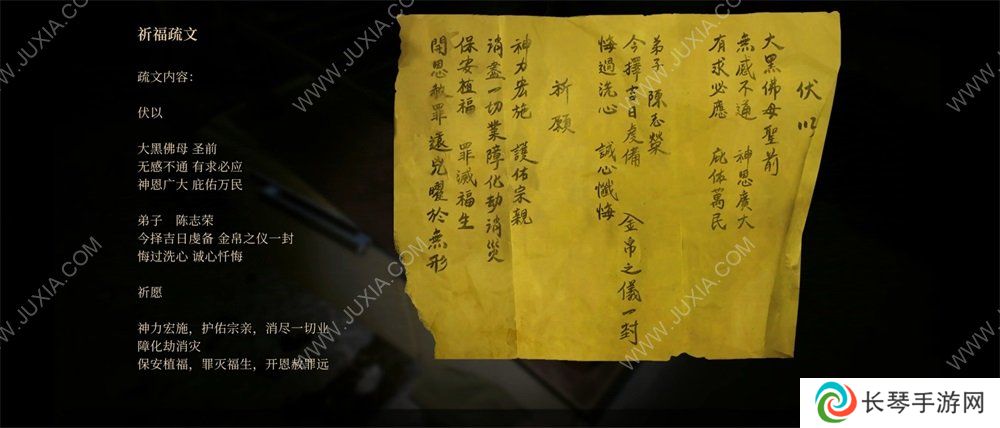 祈福疏文
疏文内容：
伏以
大黑佛母 圣前
无感不通 有求必应
神恩广大 庇佑万民
弟子 陈志荣
今择吉日虔备 金帛之仪一封
悔过洗心 诚心忏悔
祈愿
神力宏施，护佑宗亲，消尽一切业
障化劫消灾
保安植福，罪灭福生，开恩赦罪远
伏以
大黑佛母聖前
無感不通 神恩廣大
有求必應 庇佑萬民
弟子 陳志榮
今擇吉日虔備 金帛之儀一封
悔過洗心 誠心懺悔
祈願
神力宏施 護佑宗親
消盡一切業障化劫消災
保安植福 罪滅福生
開恩赦罪遠兇曜於無形
WWW.JUXIA.COM
长琴手游网